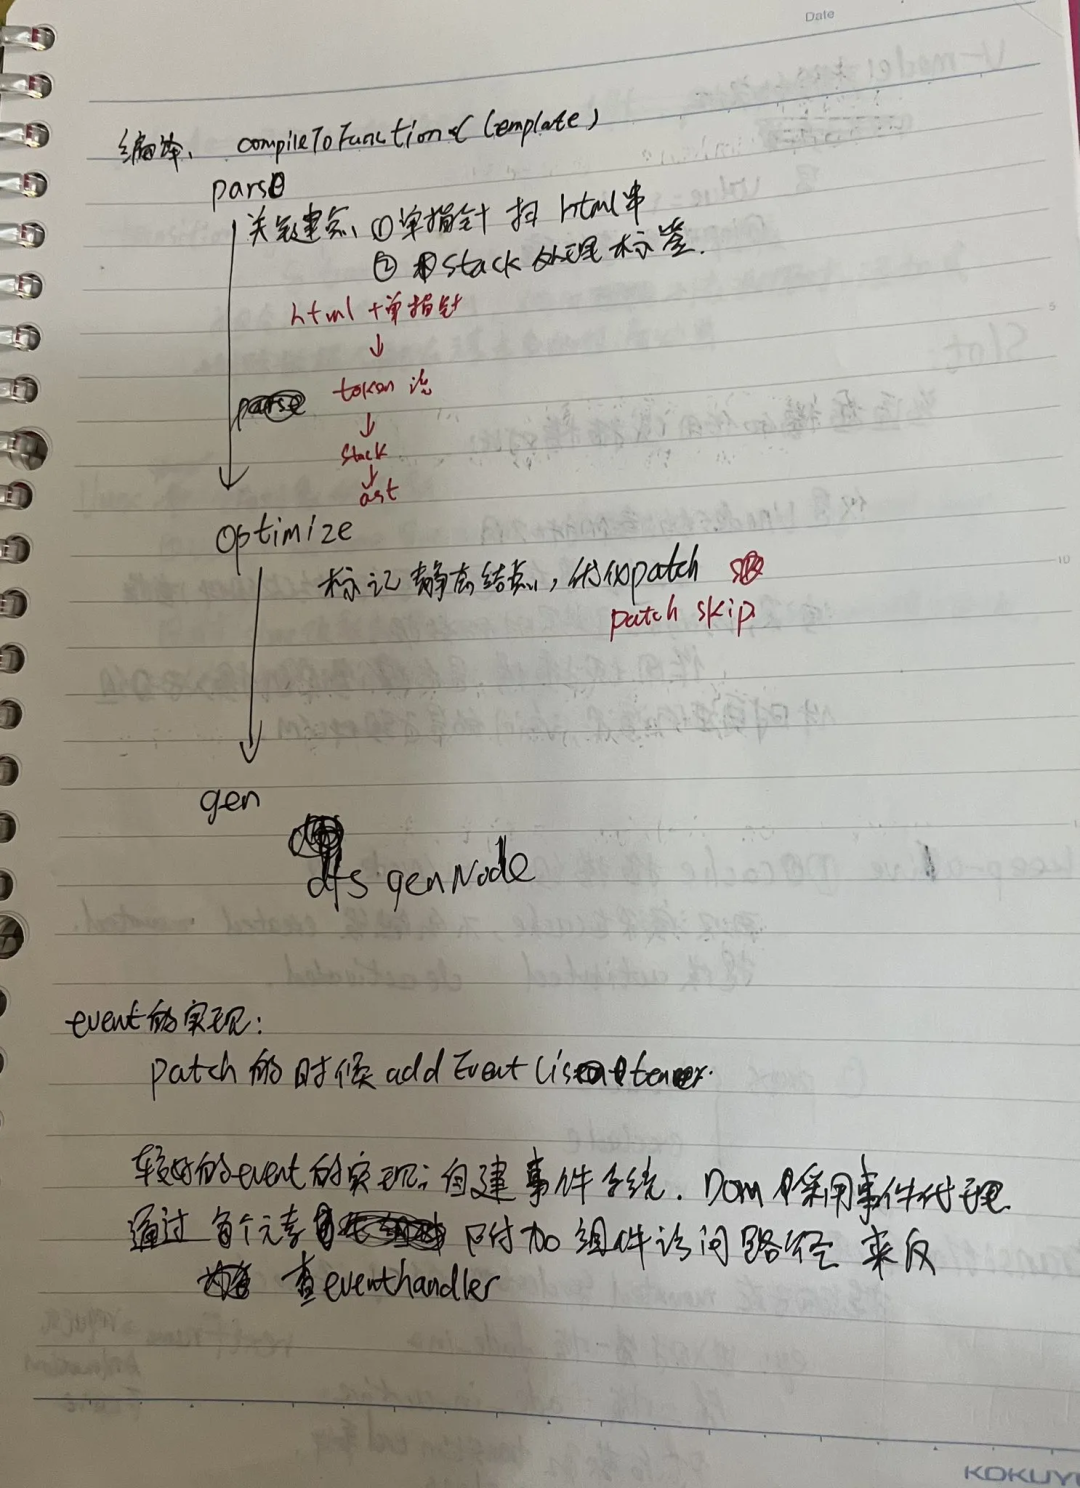 Date
编译、 compileToFunctions(template)
parse
关键点、①单指针 扫 html串
② 用stack 处理 标签.
html +单指针
↓
token 流
↓
parse
stack
↓
ast
optimize
标记 静态结点, 优化patch
patch skip
gen
dfs genNode
event的实现:
patch 的时候 addEventListener.
较好的event的实现: 自建 事件系统. Dom 采用事件代理
通过 每个元素 附加 组件访问路径 来反
查eventhandler
KOKUYO